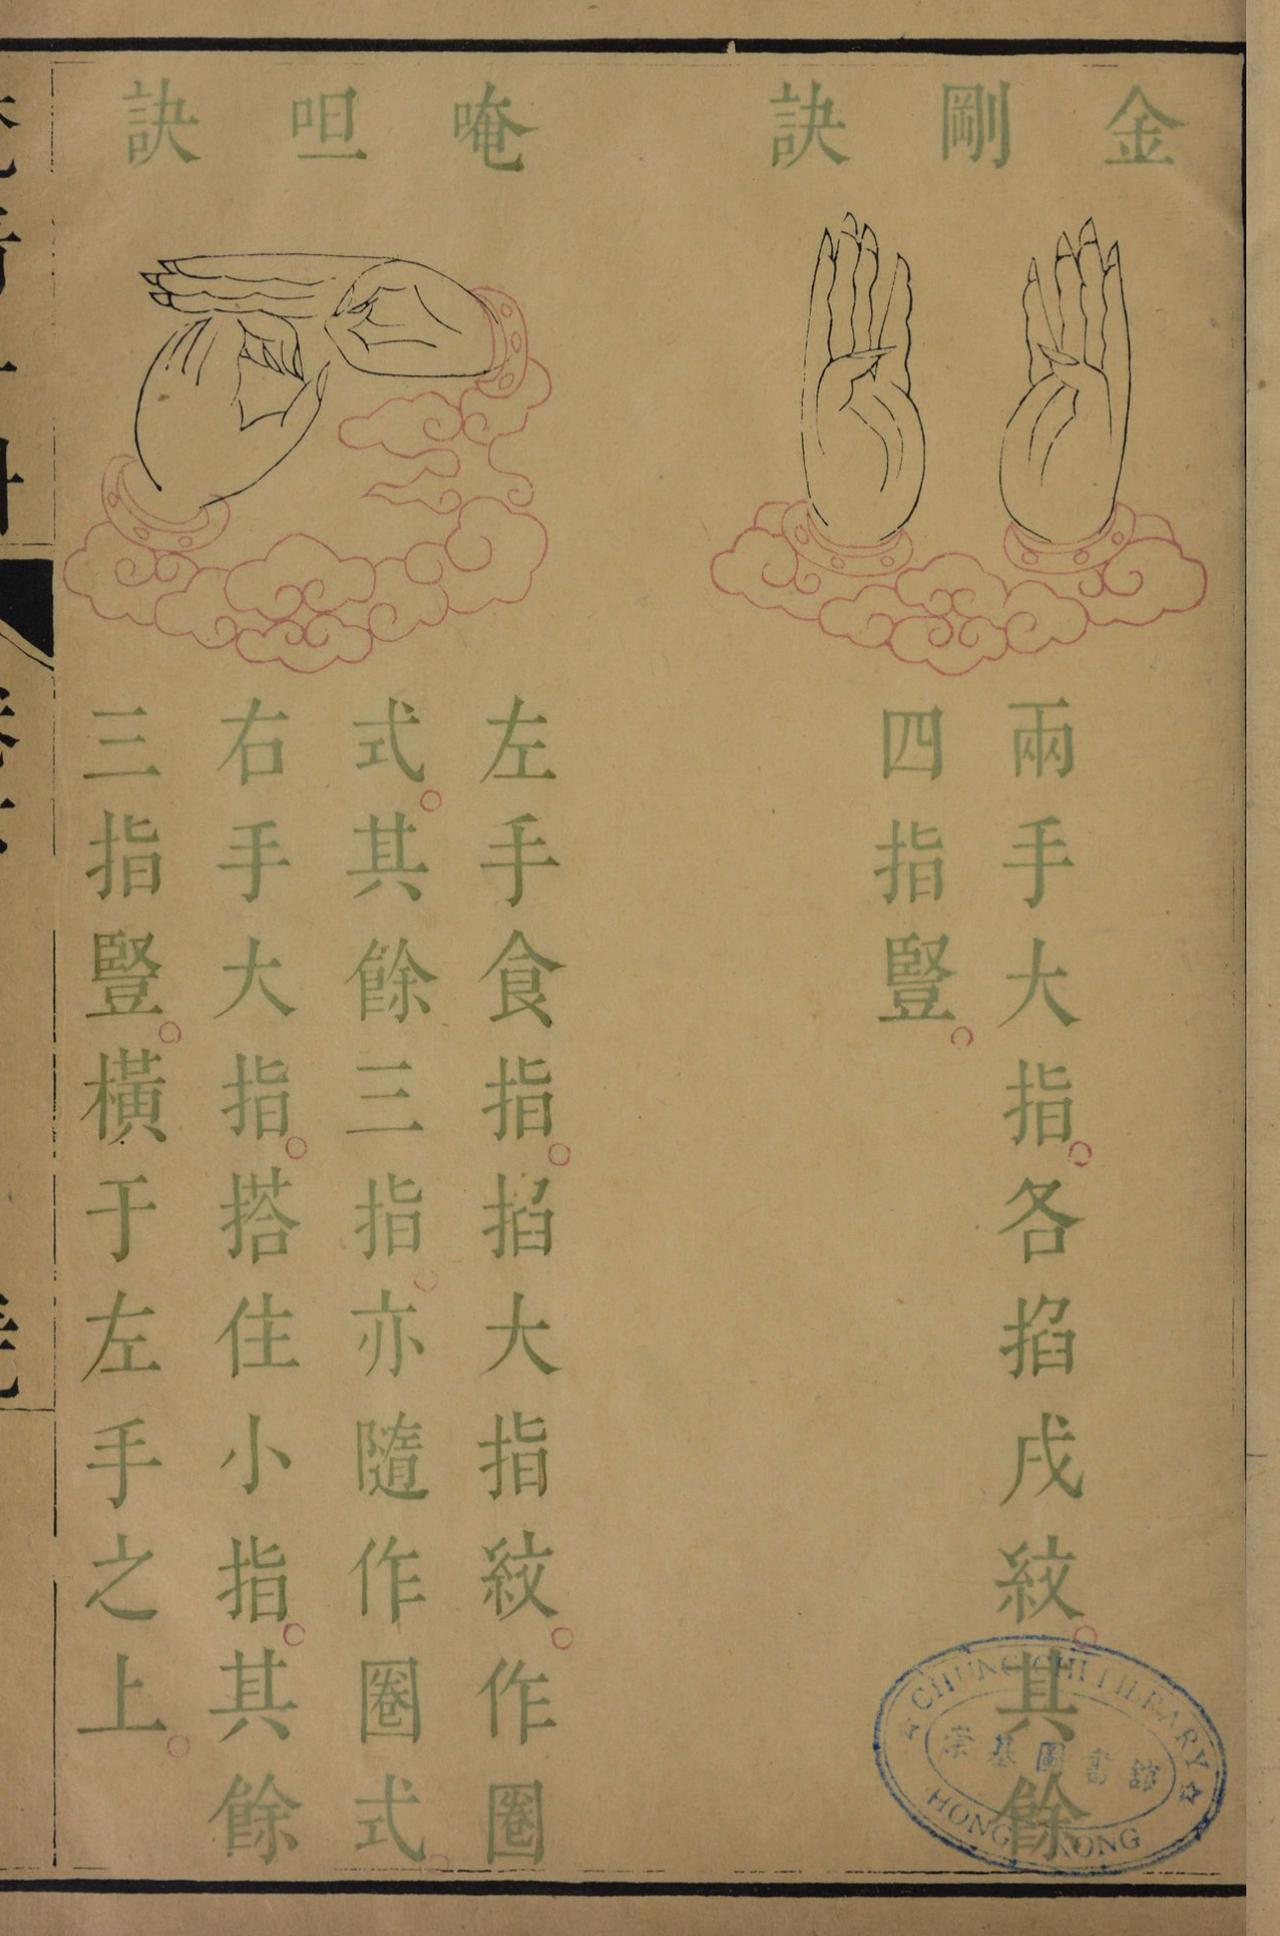 金剛訣
兩手大指。各掐戌紋。其餘
四指豎。
唵呾訣
左手食指。掐大指紋。作圈
式。其餘三指。亦隨作圈式。
右手大指。搭住小指。其餘
三指豎。橫于左手之上。
CHUNG CHI LIBRARY
崇基圖書館
HONG KONG